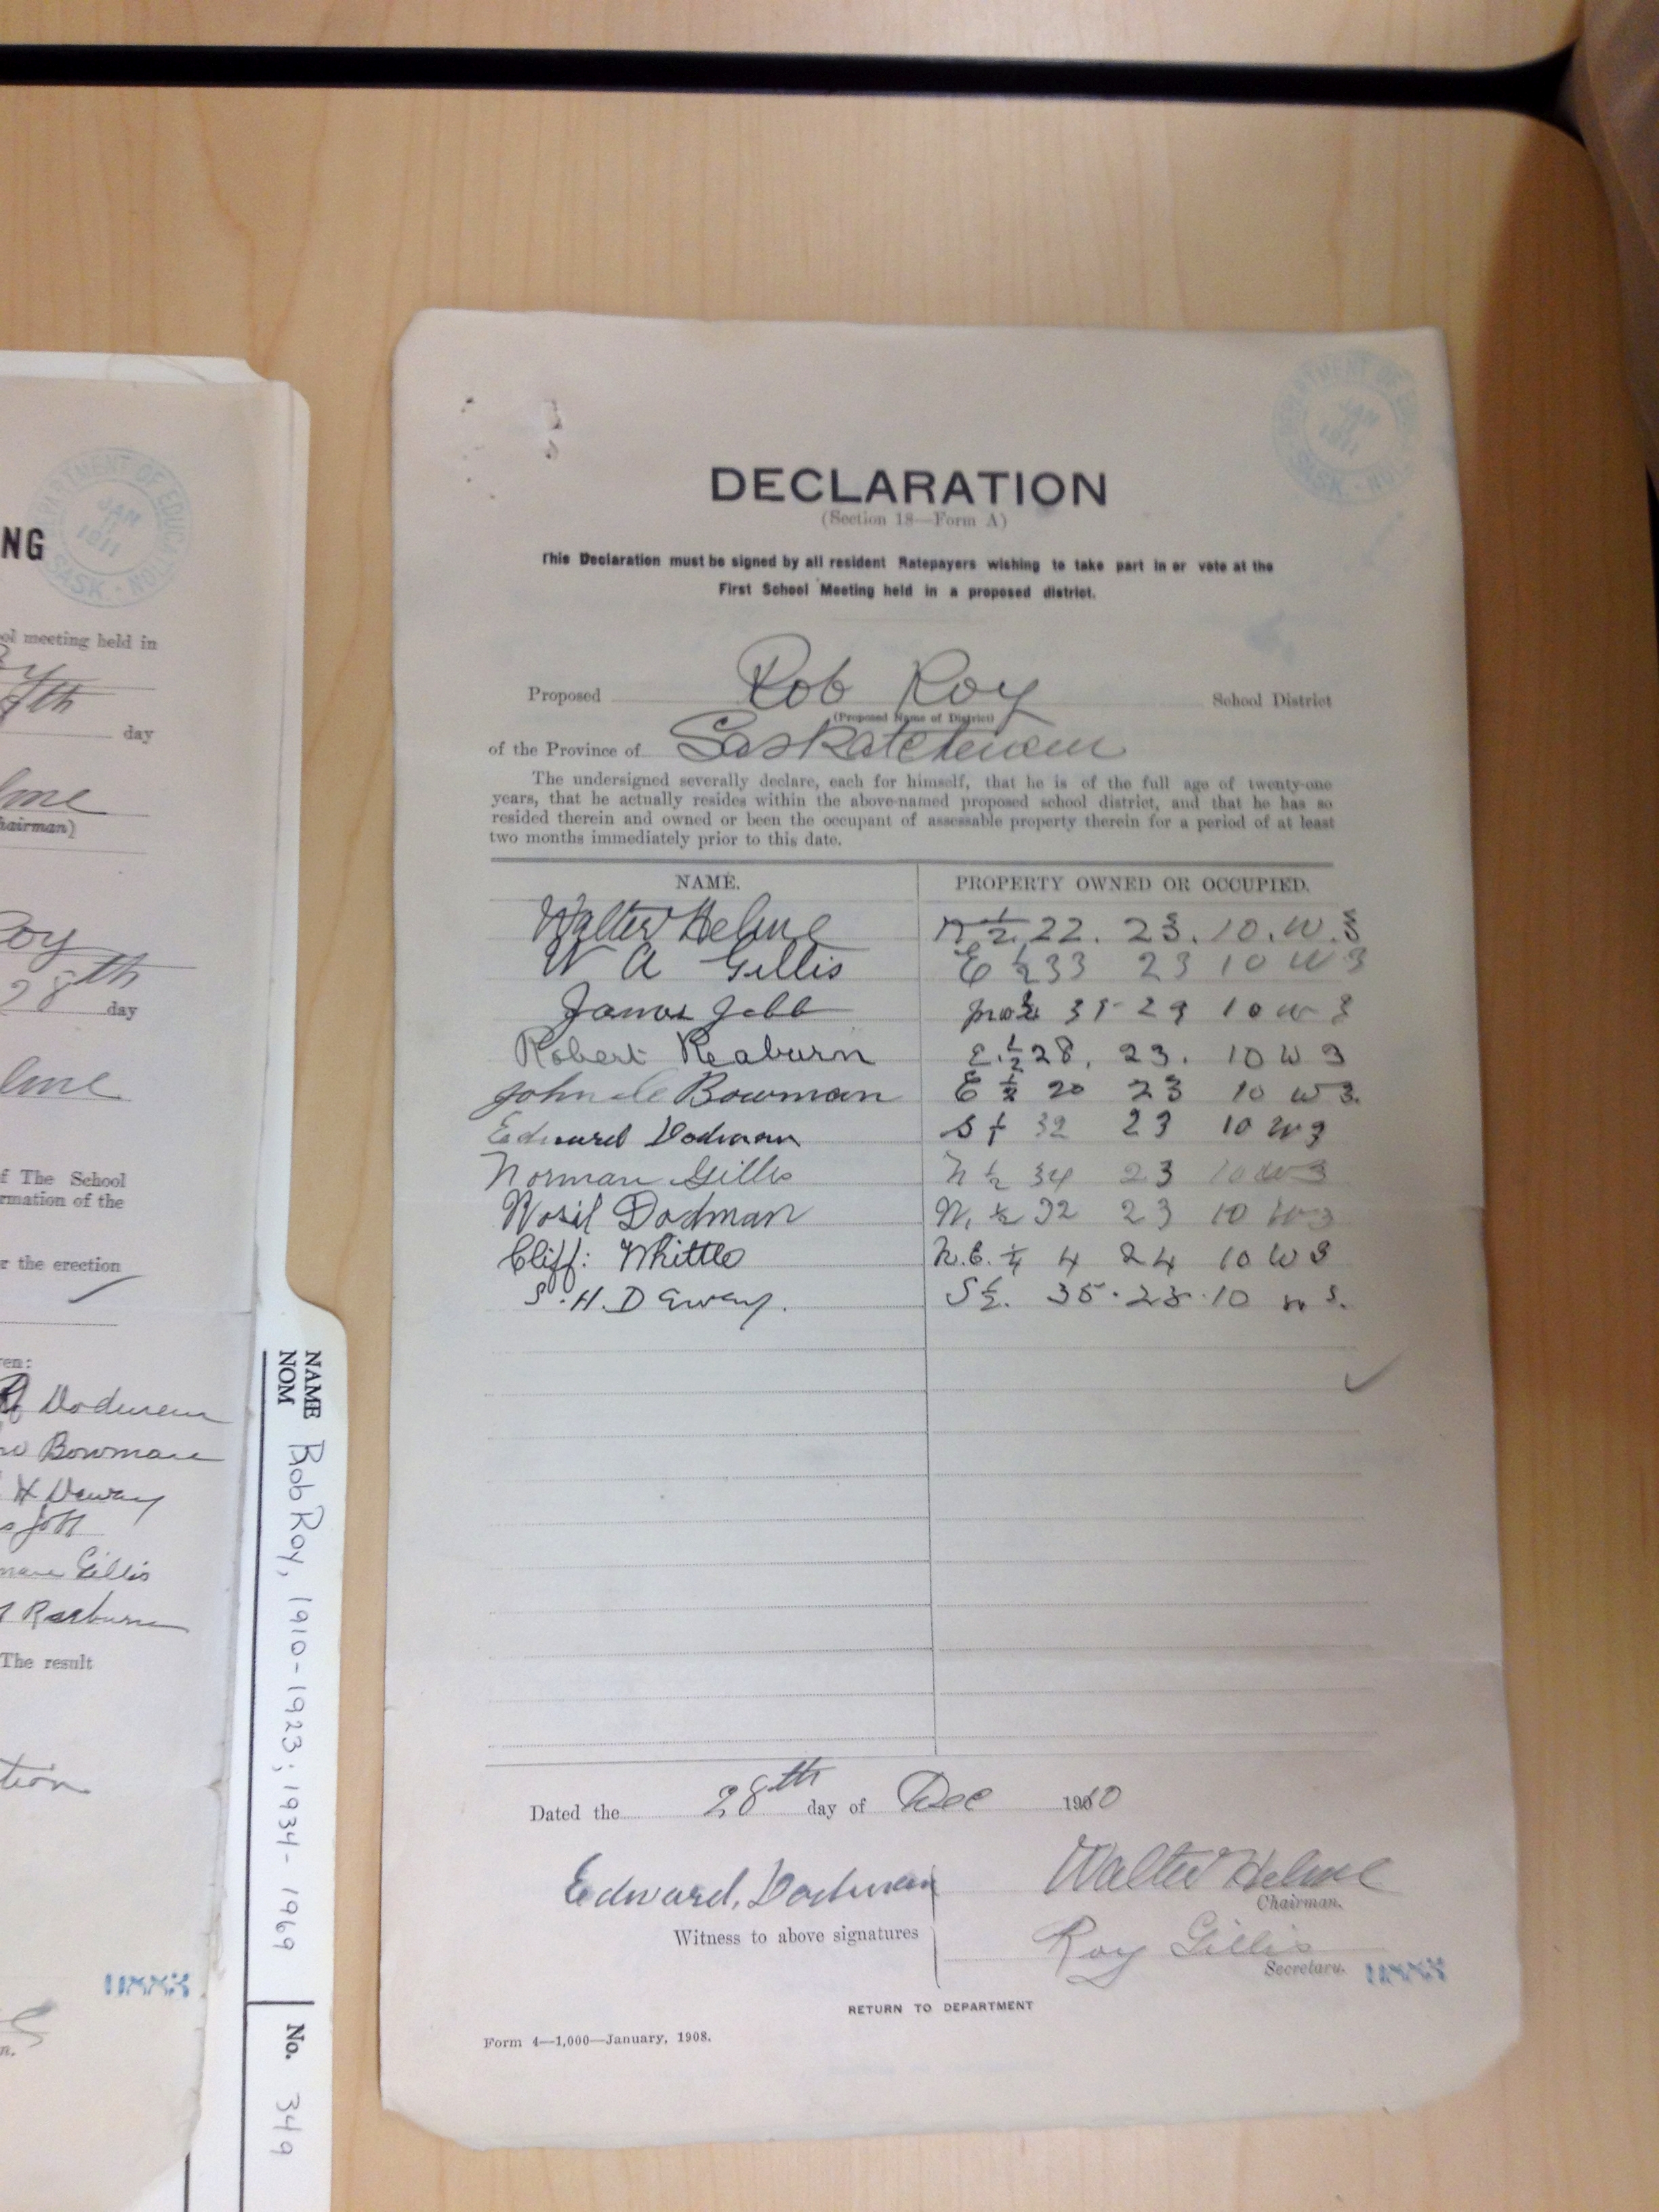 NG
DEPARTMENT OF EDUCATION
JAN
1911
SASK.
ol meeting held in
7th
day
lme
hairman)
Roy
28th
day
lme
f The School
rmation of the
r the erection
en:
Dodman
Bowman
H Dewey
man Gillis
Raeburn
The result
tion
n.
NAME
NOM
Rob Roy, 1910-1923; 1934-1969
No. 349
DEPARTMENT OF
JAN
1911
SASK.
DECLARATION
(Section 18—Form A)
This Declaration must be signed by all resident Ratepayers wishing to take part in or vote at the
First School Meeting held in a proposed district.
Proposed Rob Roy School District
(Proposed Name of District)
of the Province of Saskatchewan
The undersigned severally declare, each for himself, that he is of the full age of twenty-one
years, that he actually resides within the above-named proposed school district, and that he has so
resided therein and owned or been the occupant of assessable property therein for a period of at least
two months immediately prior to this date.
NAME. PROPERTY OWNED OR OCCUPIED.
Walter Helme N ½ 22. 23. 10. W. 3
W A Gillis E ½ 33 23 10 W 3
James Jebb 10 W 3
Robert Reaburn E. ½ 28. 23. 10 W 3
John Bowman E ½ 20 23 10 W 3.
Edward Dodman S ½ 32 23 10 W 3
Norman Gillis N ½ 34 23 10 W 3
Wosil Dodman N. ½ 32 23 10 W 3
Cliff: Whittle N.E. ¼ 4 24 10 W 3
S. H. Dewey. S ½. 35. 23. 10 W 3.
Dated the 28th day of Dec 1910
Edward, Dodman Walter Helme
Chairman.
Witness to above signatures
Roy Gillis
Secretary.
RETURN TO DEPARTMENT
Form 4—1,000—January, 1908.